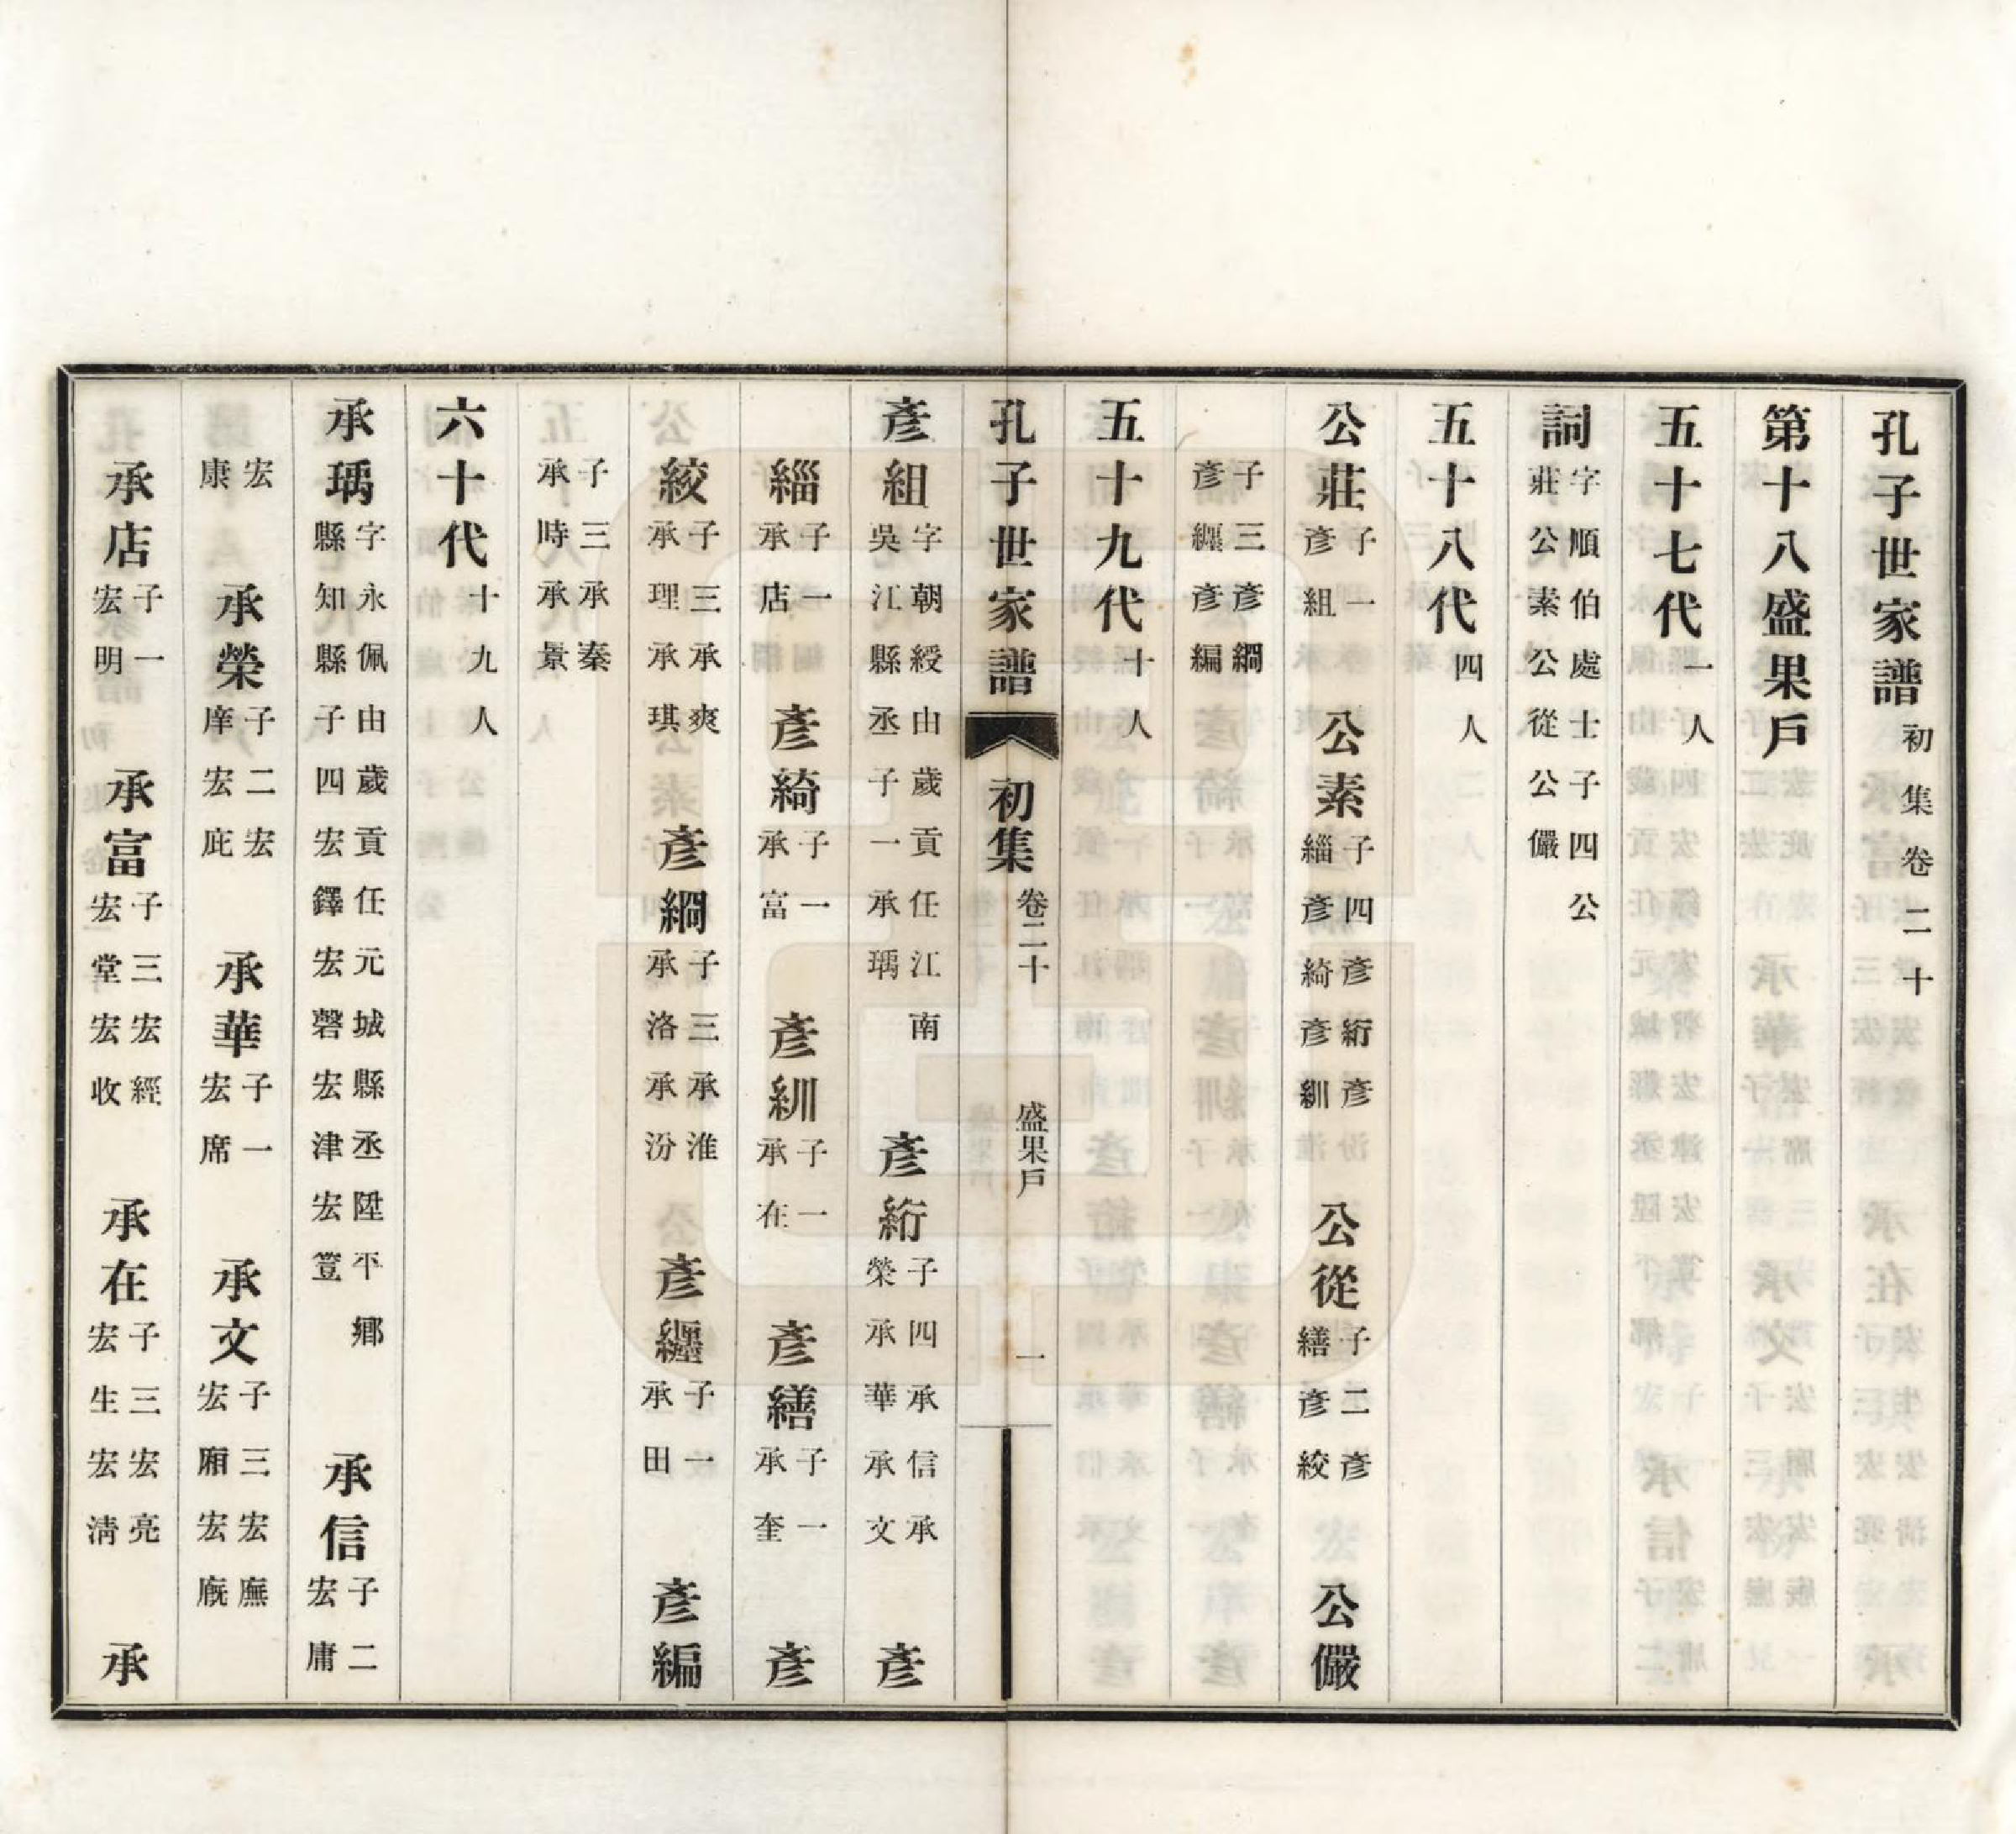 孔子世家譜初集卷二十
第十八盛果戶
五十七代一人
詞字順伯處士子四公莊公素公從公儼
五十八代四人
公莊子一彥組　公素子四彥絎彥緇彥綺彥紃　公從子二彥繕彥絞　公儼
子三彥綱彥纏彥編
五十九代十人
孔子世家譜　初集　卷二十　盛果戶　一
彥組字朝綬由歲貢任江南吳江縣丞子一承瑀　彥絎子四承信承榮承華承文　彥
緇子一承店　彥綺子一承富　彥紃子一承在　彥繕子一承奎　彥
絞子三承爽承理承琪　彥綱子三承淮承洛承汾　彥纏子一承田　彥編
子三承秦承時承景
六十代十九人
承瑀字永佩由歲貢任元城縣丞陞平鄉縣知縣子四宏鐸宏磬宏津宏簠　承信子二宏庸
宏康　承榮子二宏庠宏庇　承華子一宏席　承文子三宏廡宏廂宏廐
承店子一宏明　承富子三宏經宏堂宏收　承在子三宏亮宏生宏淸　承